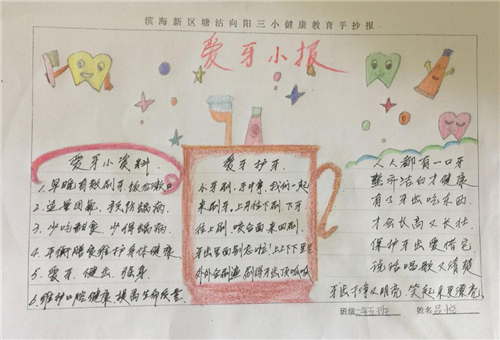 滨海新区塘沽向阳三小健康教育手抄报
爱牙小报
爱牙小资料
1.早晚有效刷牙,饭后漱口
2.适量用氟,预防龋病.
3.少吃甜食,少得龋病.
4.平衡膳食维护身体健康
5.爱牙、健齿、强身
6.维护口腔健康、提高生命质量
爱牙护牙.
小牙刷,手中拿,我们一起
来刷牙,上牙往下刷,下牙
往上刷,咬合面来回刷.
牙齿里面别忘啦!上上下下里里
外外全刷遍,刷得牙齿顶呱呱
人人都有一口牙
整齐洁白才健康
有了牙齿吃东西
才会长高又长壮
保护牙齿要借它
说话唱歌又清楚
牙齿干净又明亮,笑起来更漂亮.
班级: 姓名:吕悦